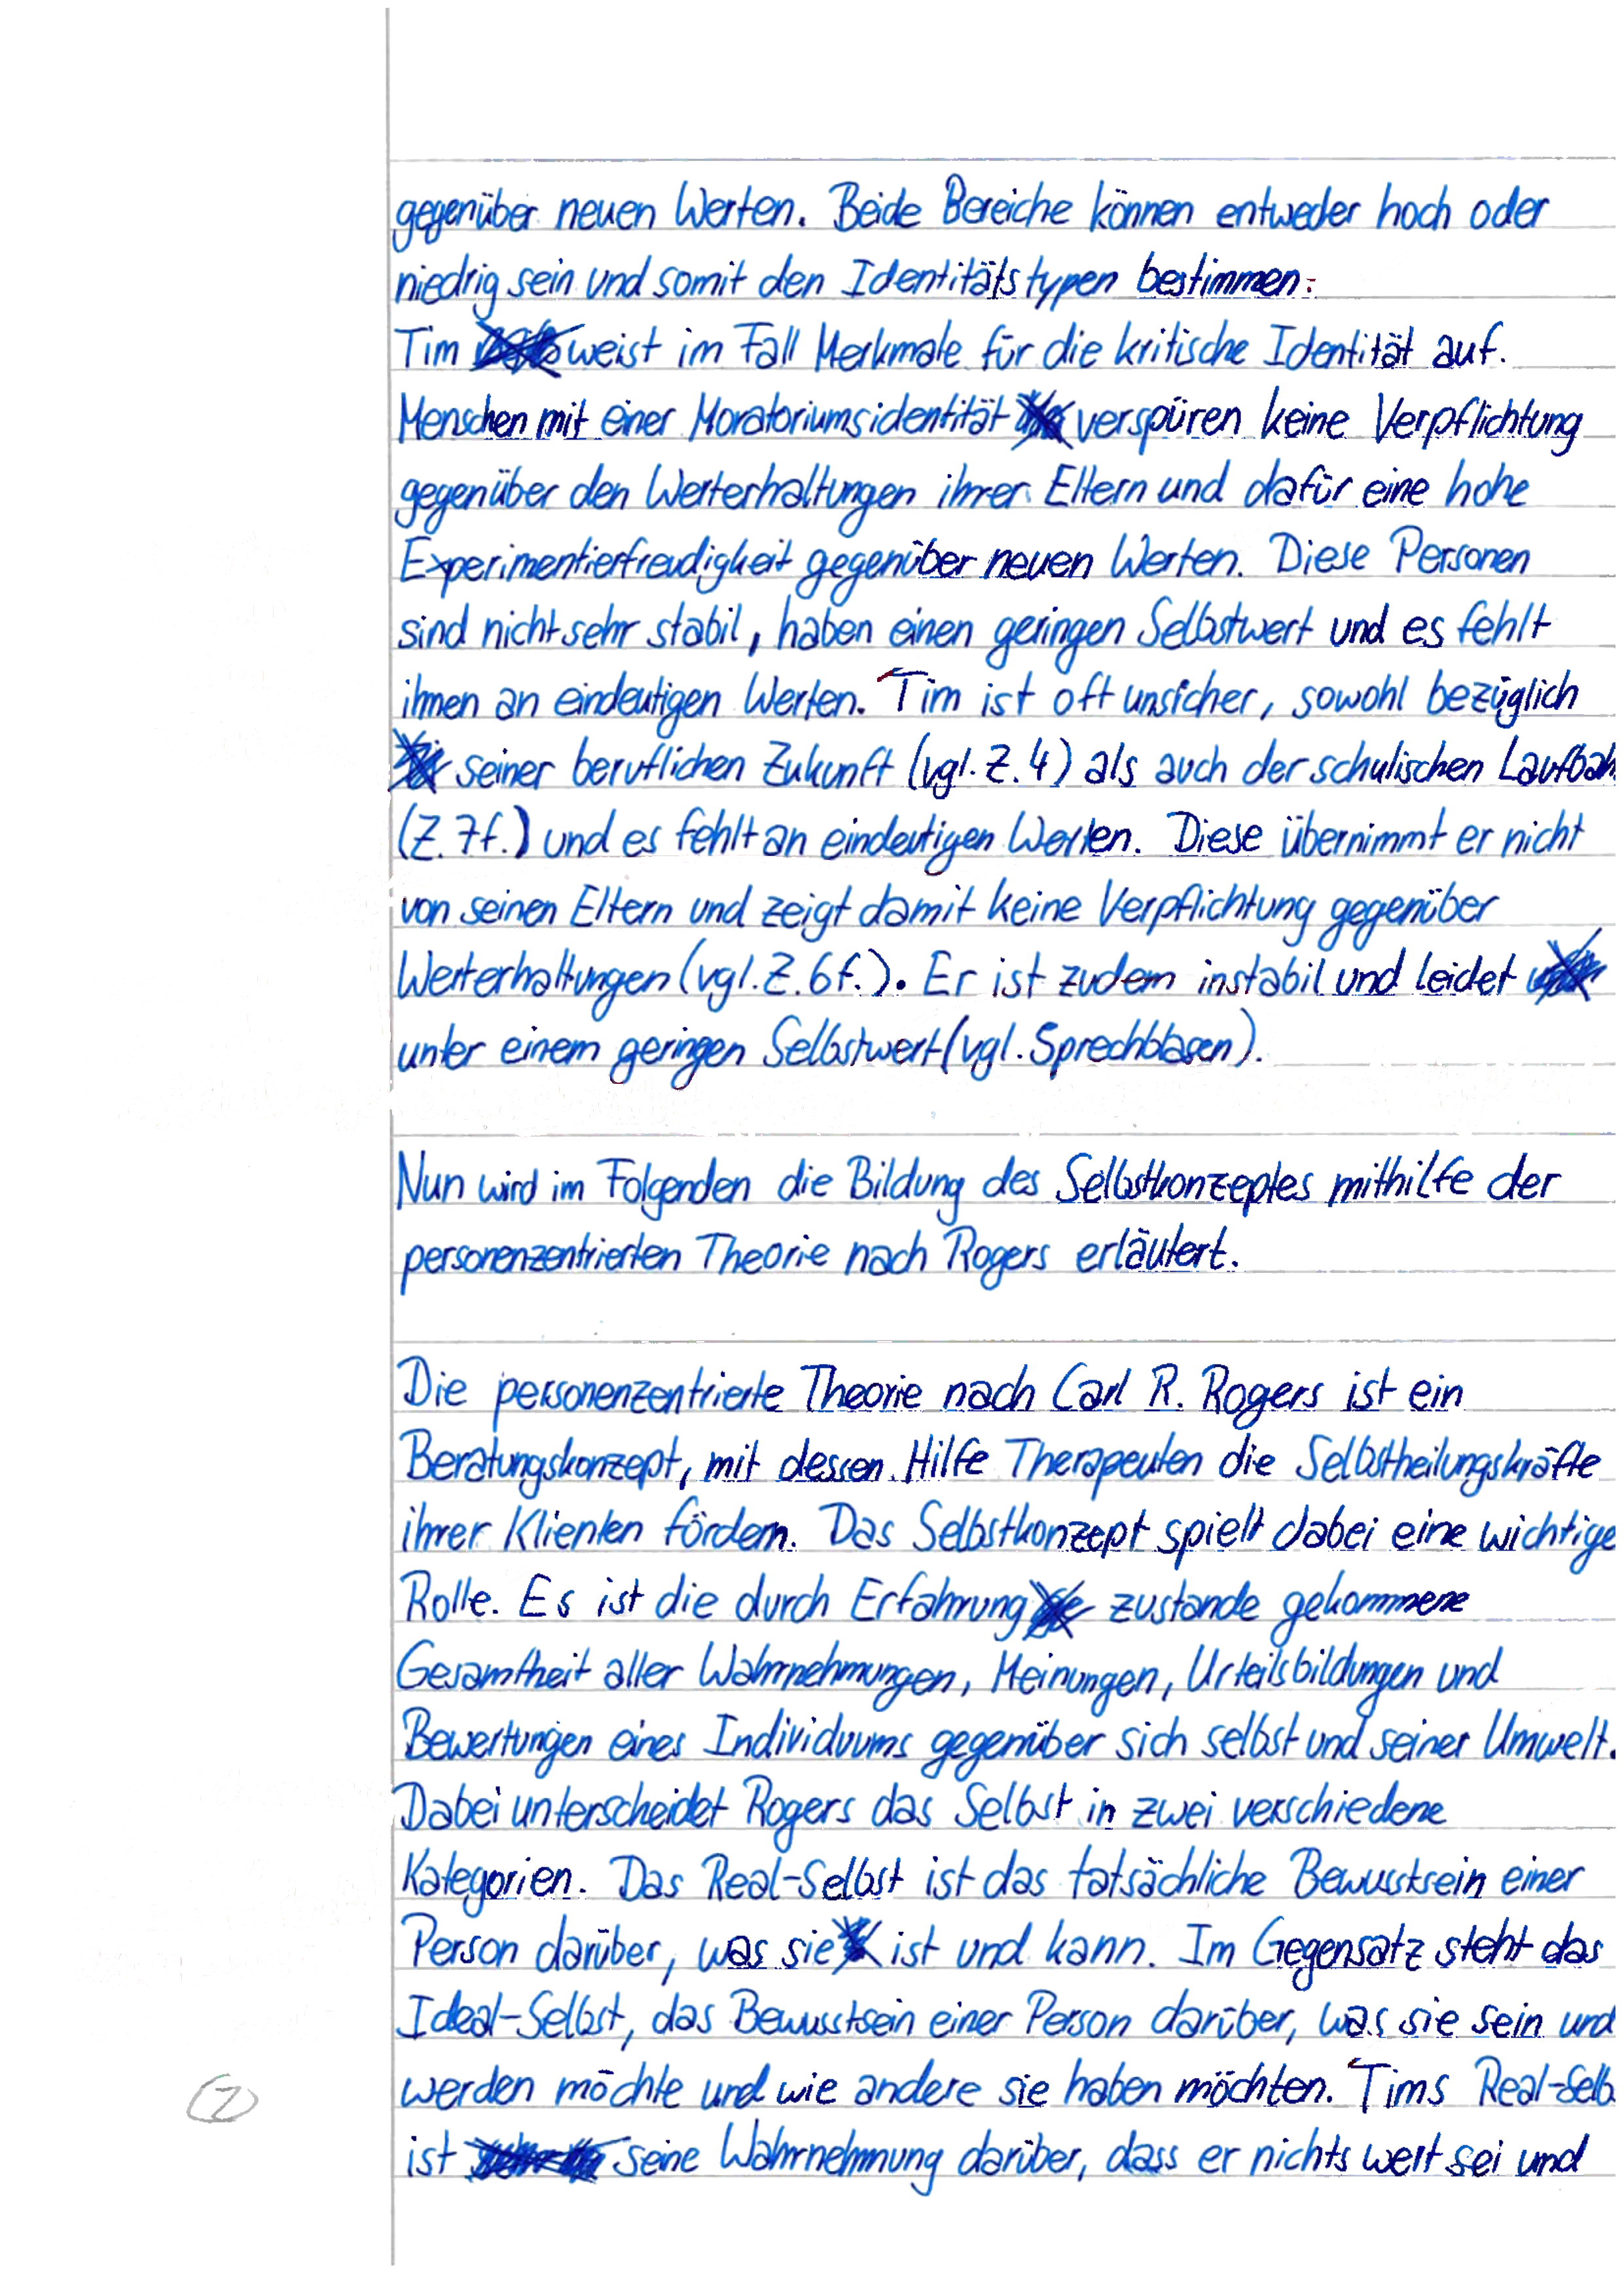 gegenüber neuen Werten. Beide Bereiche können entweder hoch oder
niedrig sein und somit den Identitätstypen bestimmen.
Tim weist im Fall Merkmale für die kritische Identität auf.
Menschen mit einer Moratoriumsidentität verspüren keine Verpflichtung
gegenüber den Werterhaltungen ihrer Eltern und dafür eine hohe
Experimentierfreudigkeit gegenüber neuen Werten. Diese Personen
sind nicht sehr stabil, haben einen geringen Selbstwert und es fehlt
ihnen an eindeutigen Werten. Tim ist oft unsicher, sowohl bezüglich
seiner beruflichen Zukunft (vgl. Z. 4) als auch der schulischen Laufbah
(Z. 7f.) und es fehlt an eindeutigen Werten. Diese übernimmt er nicht
von seinen Eltern und zeigt damit keine Verpflichtung gegenüber
Werterhaltungen (vgl. Z. 6f.). Er ist zudem instabil und leidet
unter einem geringen Selbstwert (vgl. Sprechblasen).
Nun wird im Folgenden die Bildung des Selbstkonzeptes mithilfe der
personenzentrierten Theorie nach Rogers erläutert.
Die personenzentrierte Theorie nach Carl R. Rogers ist ein
Beratungskonzept, mit dessen Hilfe Therapeuten die Selbstheilungskräfte
ihrer Klienten fördern. Das Selbstkonzept spielt dabei eine wichtige
Rolle. Es ist die durch Erfahrung zustande gekommene
Gesamtheit aller Wahrnehmungen, Meinungen, Urteilsbildungen und
Bewertungen eines Individuums gegenüber sich selbst und seiner Umwelt.
Dabei unterscheidet Rogers das Selbst in zwei verschiedene
Kategorien. Das Real-Selbst ist das tatsächliche Bewusstsein einer
Person darüber, was sie ist und kann. Im Gegensatz steht das
Ideal-Selbst, das Bewusstsein einer Person darüber, was sie sein und
werden möchte und wie andere sie haben möchten. Tims Real-Selb
ist seine Wahrnehmung darüber, dass er nichts wert sei und